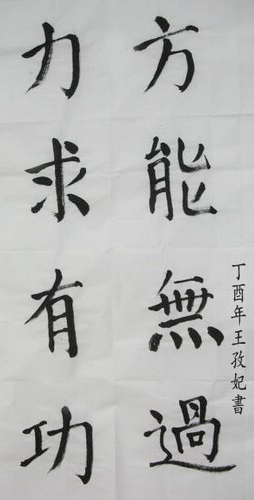 力求有功
方能無過
丁酉年王孜妃書